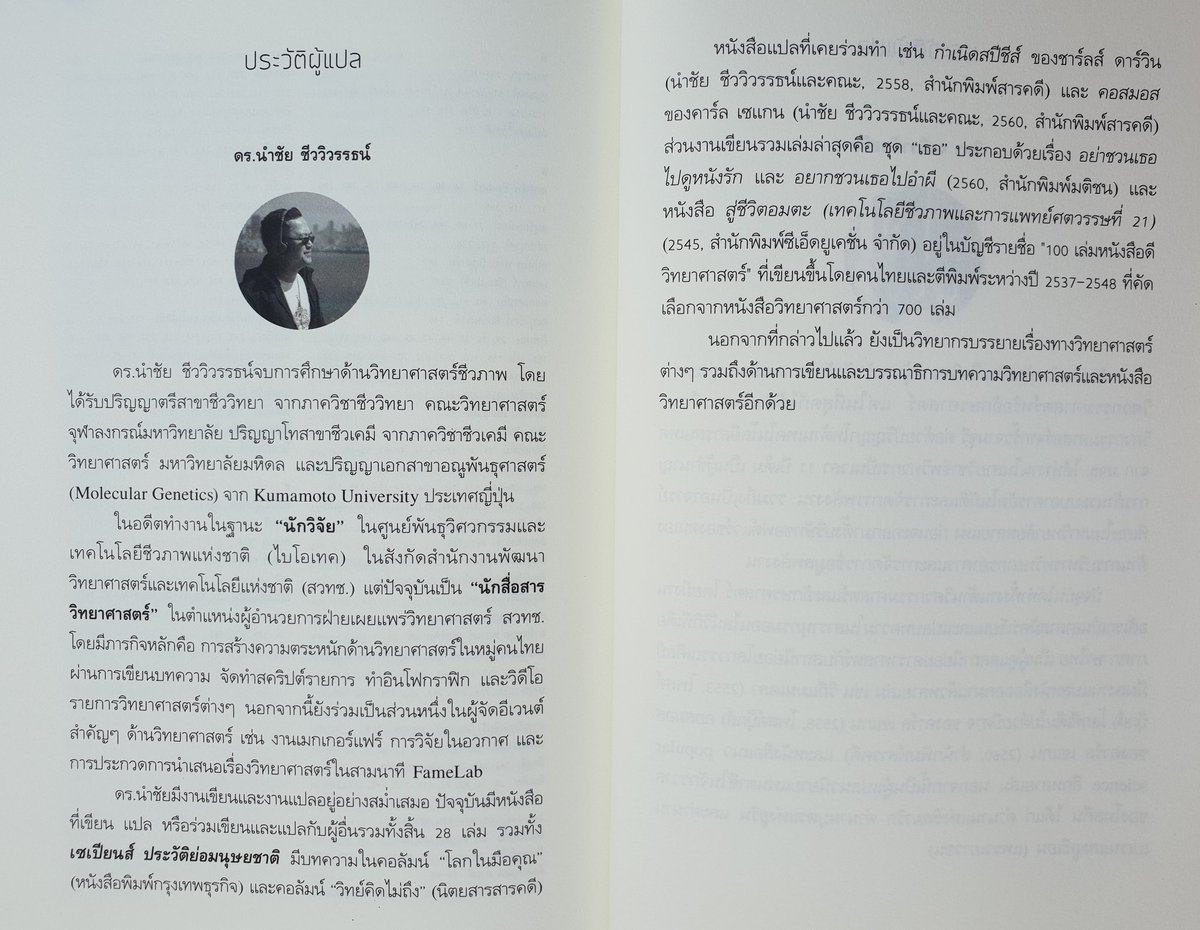 ประวัติผู้แปล
ดร.นำชัย ชีววิวรรธน์
ดร.นำชัย ชีววิวรรธน์จบการศึกษาด้านวิทยาศาสตร์ชีวภาพ โดย
ได้รับปริญญาตรีสาขาชีววิทยา จากภาควิชาชีววิทยา คณะวิทยาศาสตร์
จุฬาลงกรณ์มหาวิทยาลัย ปริญญาโทสาขาชีวเคมี จากภาควิชาชีวเคมี คณะ
วิทยาศาสตร์ มหาวิทยาลัยมหิดล และปริญญาเอกสาขาอณูพันธุศาสตร์
(Molecular Genetics) จาก Kumamoto University ประเทศญี่ปุ่น
ในอดีตทำงานในฐานะ “นักวิจัย” ในศูนย์พันธุวิศวกรรมและ
เทคโนโลยีชีวภาพแห่งชาติ (ไบโอเทค) ในสังกัดสำนักงานพัฒนา
วิทยาศาสตร์และเทคโนโลยีแห่งชาติ (สวทช.) แต่ปัจจุบันเป็น “นักสื่อสาร
วิทยาศาสตร์” ในตำแหน่งผู้อำนวยการฝ่ายเผยแพร่วิทยาศาสตร์ สวทช.
โดยมีภารกิจหลักคือ การสร้างความตระหนักด้านวิทยาศาสตร์ในหมู่คนไทย
ผ่านการเขียนบทความ จัดทำสคริปต์รายการ ทำอินโฟกราฟิก และวิดีโอ
รายการวิทยาศาสตร์ต่างๆ นอกจากนี้ยังร่วมเป็นส่วนหนึ่งในผู้จัดอีเวนต์
สำคัญๆ ด้านวิทยาศาสตร์ เช่น งานเมกเกอร์แฟร์ การวิจัยในอวกาศ และ
การประกวดการนำเสนอเรื่องวิทยาศาสตร์ในสามนาที FameLab
ดร.นำชัยมีงานเขียนและงานแปลอยู่อย่างสม่ำเสมอ ปัจจุบันมีหนังสือ
ที่เขียน แปล หรือร่วมเขียนและแปลกับผู้อื่นรวมทั้งสิ้น 28 เล่ม รวมทั้ง
เซเปียนส์ ประวัติย่อมนุษยชาติ มีบทความในคอลัมน์ “โลกในมือคุณ”
(หนังสือพิมพ์กรุงเทพธุรกิจ) และคอลัมน์ “วิทย์คิดไม่ถึง” (นิตยสารสารคดี)
หนังสือแปลที่เคยร่วมทำ เช่น กำเนิดสปีชีส์ ของชาร์ลส์ ดาร์วิน
(นำชัย ชีววิวรรธน์และคณะ, 2558, สำนักพิมพ์สารคดี) และ คอสมอส
ของคาร์ล เซแกน (นำชัย ชีววิวรรธน์และคณะ, 2560, สำนักพิมพ์สารคดี)
ส่วนงานเขียนรวมเล่มล่าสุดคือ ชุด “เธอ” ประกอบด้วยเรื่อง อย่าชวนเธอ
ไปดูหนังรัก และ อยากชวนเธอไปอำผี (2560, สำนักพิมพ์มติชน) และ
หนังสือ สู่ชีวิตอมตะ (เทคโนโลยีชีวภาพและการแพทย์ศตวรรษที่ 21)
(2545, สำนักพิมพ์ซีเอ็ดยูเคชั่น จำกัด) อยู่ในบัญชีรายชื่อ "100 เล่มหนังสือดี
วิทยาศาสตร์" ที่เขียนขึ้นโดยคนไทยและตีพิมพ์ระหว่างปี 2537-2548 ที่คัด
เลือกจากหนังสือวิทยาศาสตร์กว่า 700 เล่ม
นอกจากที่กล่าวไปแล้ว ยังเป็นวิทยากรบรรยายเรื่องทางวิทยาศาสตร์
ต่างๆ รวมถึงด้านการเขียนและบรรณาธิการบทความวิทยาศาสตร์และหนังสือ
วิทยาศาสตร์อีกด้วย